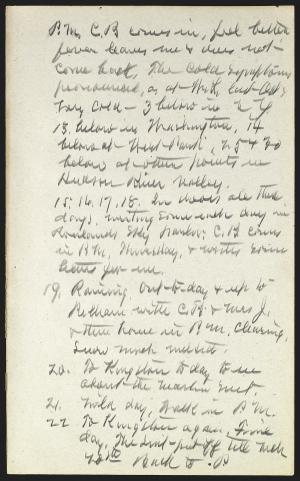 P.M. C.B. comes in, feel better
fever leaves me & does not
come back, The cold symptoms
pronounced, as at W.P. last Oct.
Very cold - 3 below in N.Y.
13 below in Washington, 14
below at West Park, 25 & 30
below at other points in
Hudson River Valley.
15, 16, 17, 18. In doors all these
days, writing some each day in
C.B. comes
in P.M. Thursday, & writes some
letters for me.
19. Raining. Out to-day & up to
Pelham with C.B. & Mrs J.
& then home in P.M., clearing,
Snow much melted.
20. To Kingston to-day to see
about the suit.
21. Mild day, Walk in P.M.
22 To Kingston again, Fine
day, The put off till
Back to P.